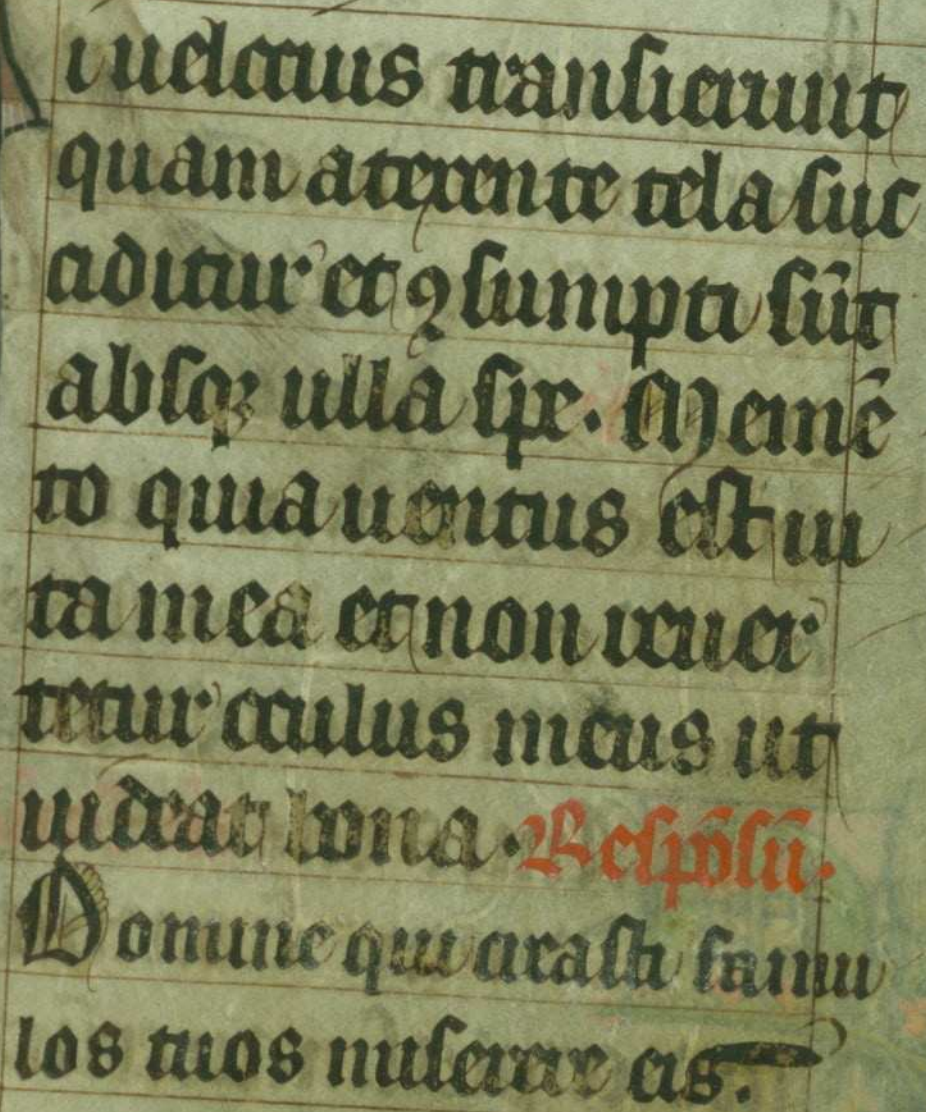 i uelocius transierunt
quam a texente tela suc
ciditur et ꝯsumpti sūt
absqꝫ ulla spe. Memē
to quia uentus est ui
ta mea et non reuer
tetur oculus meus ut
uideat bona. Respōsū.
Domine qui creasti famu
los tuos miserere eis.